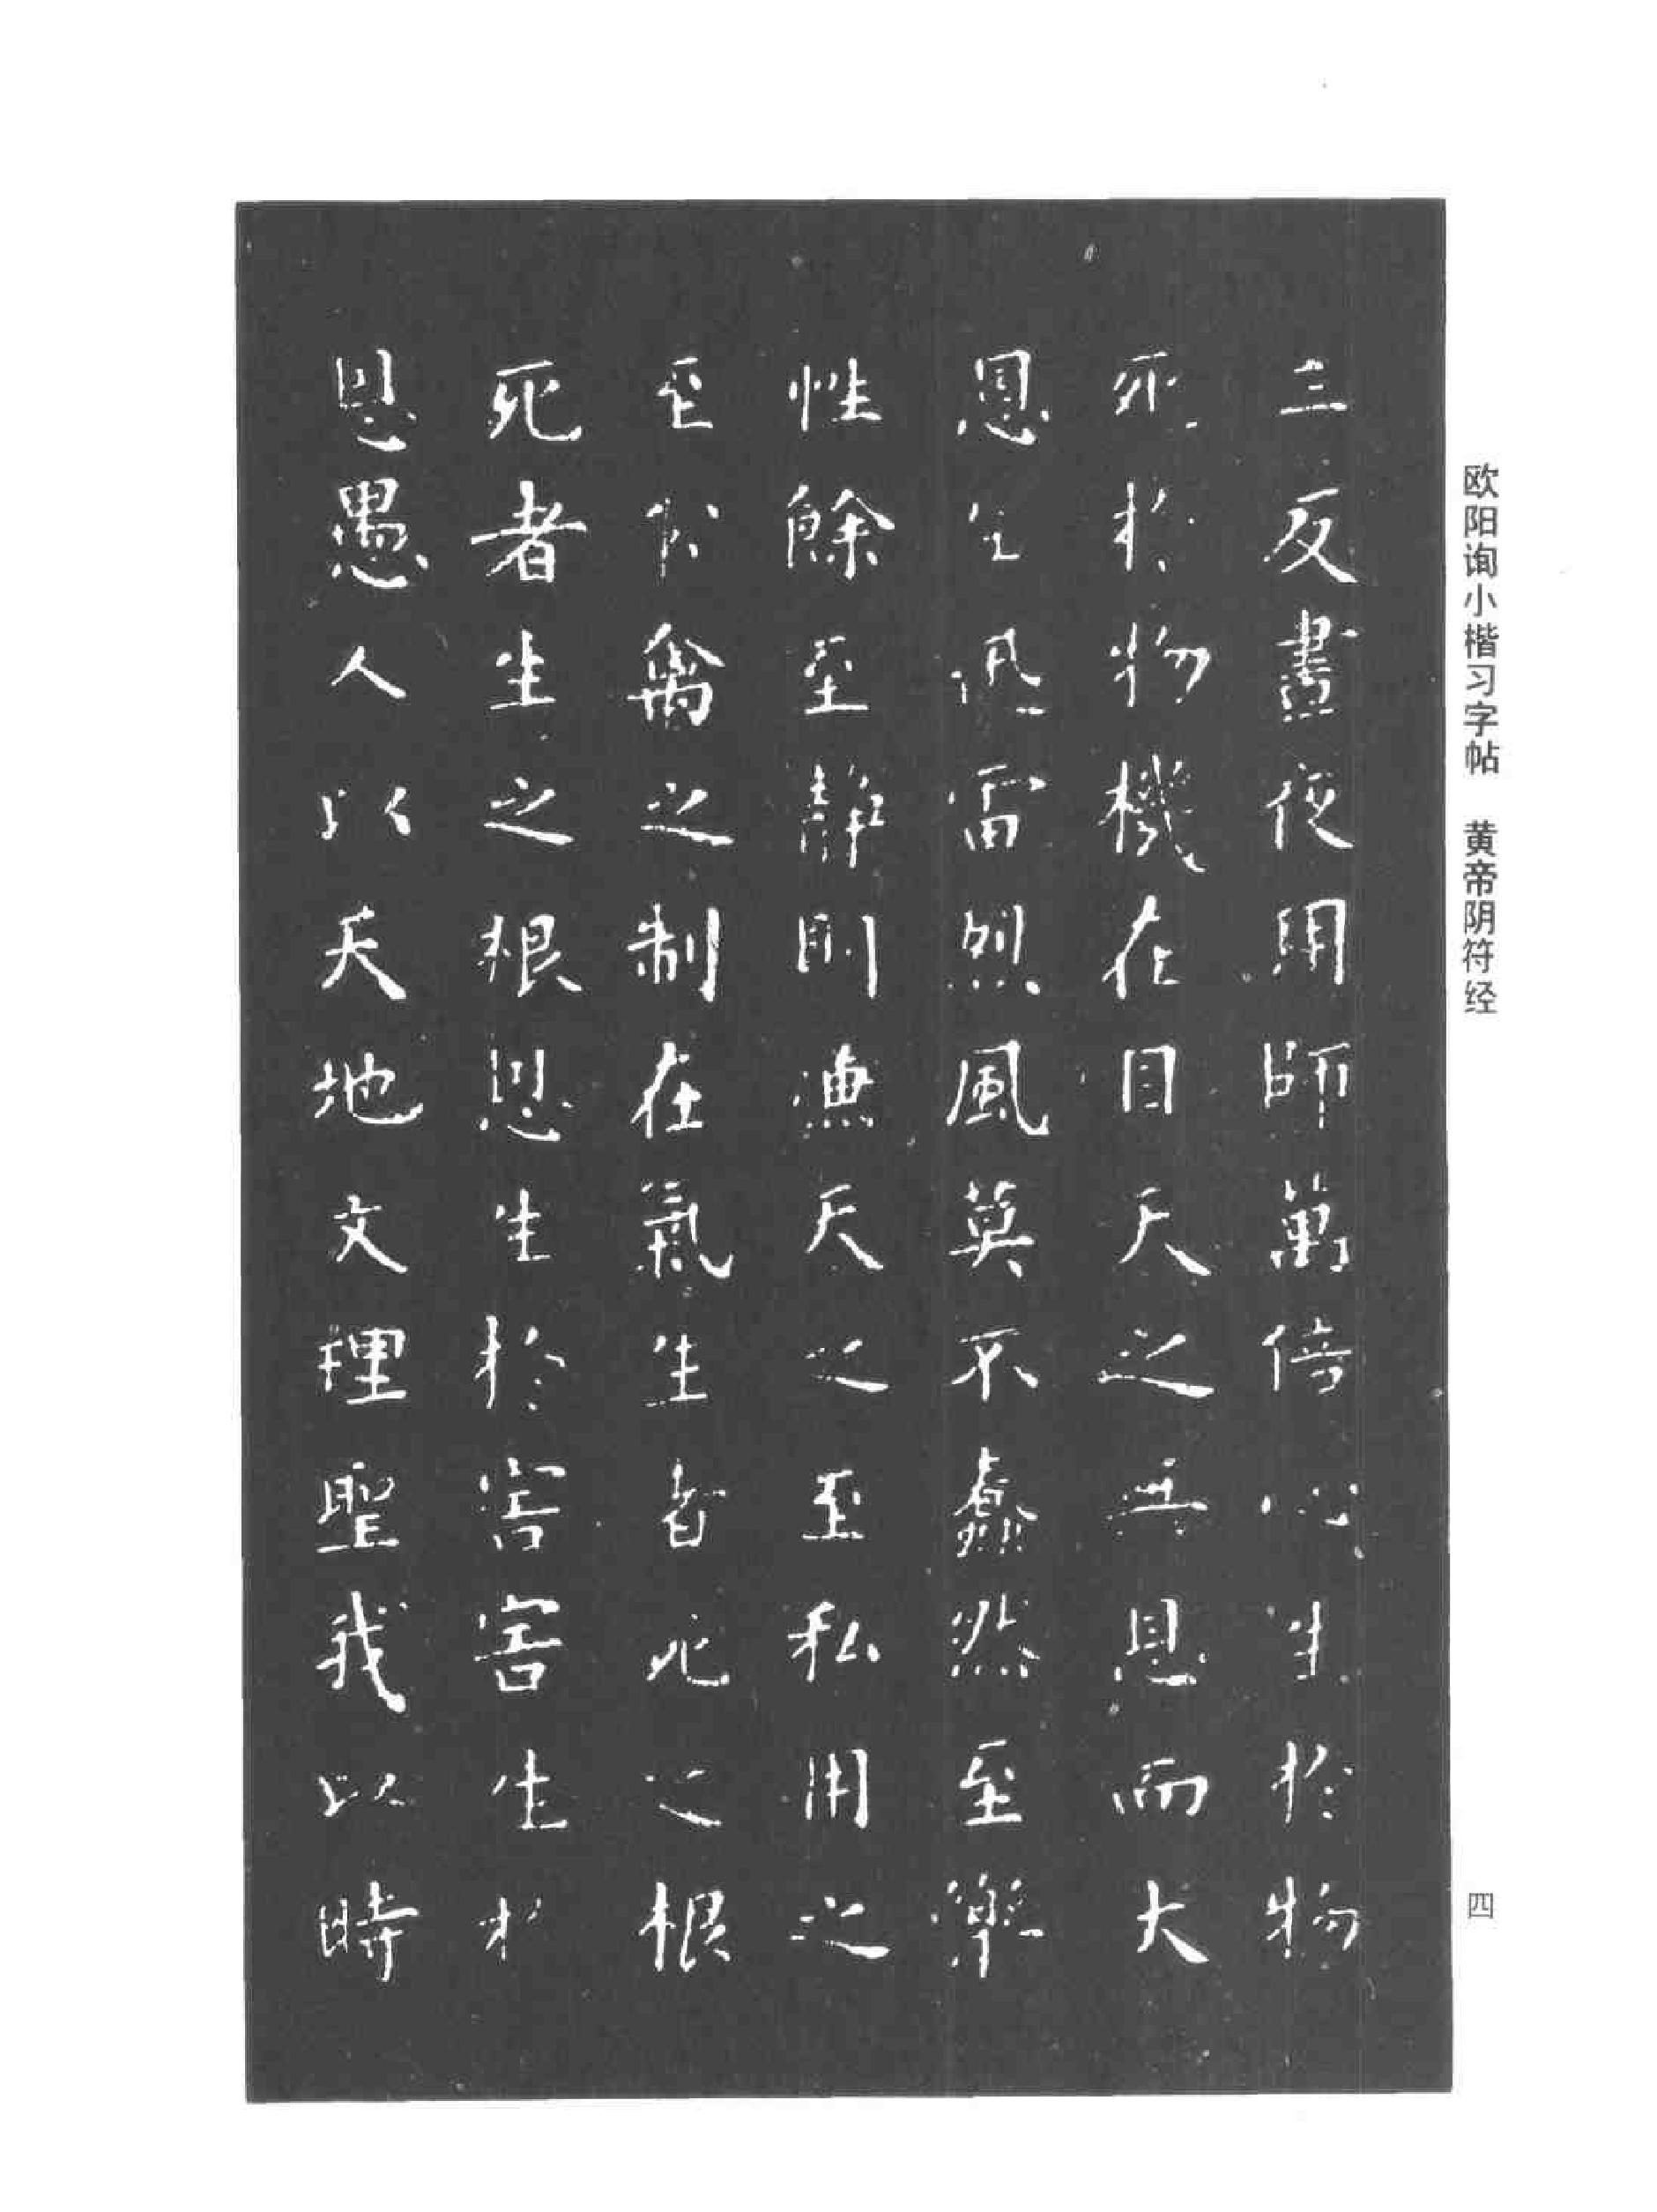 欧阳询小楷习字帖 黄帝阴符经
三反晝夜用師萬倍心生於物
死於物機在目天之無恩而大
恩生迅雷烈風莫不蠢然至樂
性餘至靜則廉天之至私用之
至公禽之制在氣生者死之根
死者生之根恩生於害害生於
恩愚人以天地文理聖我以時
四